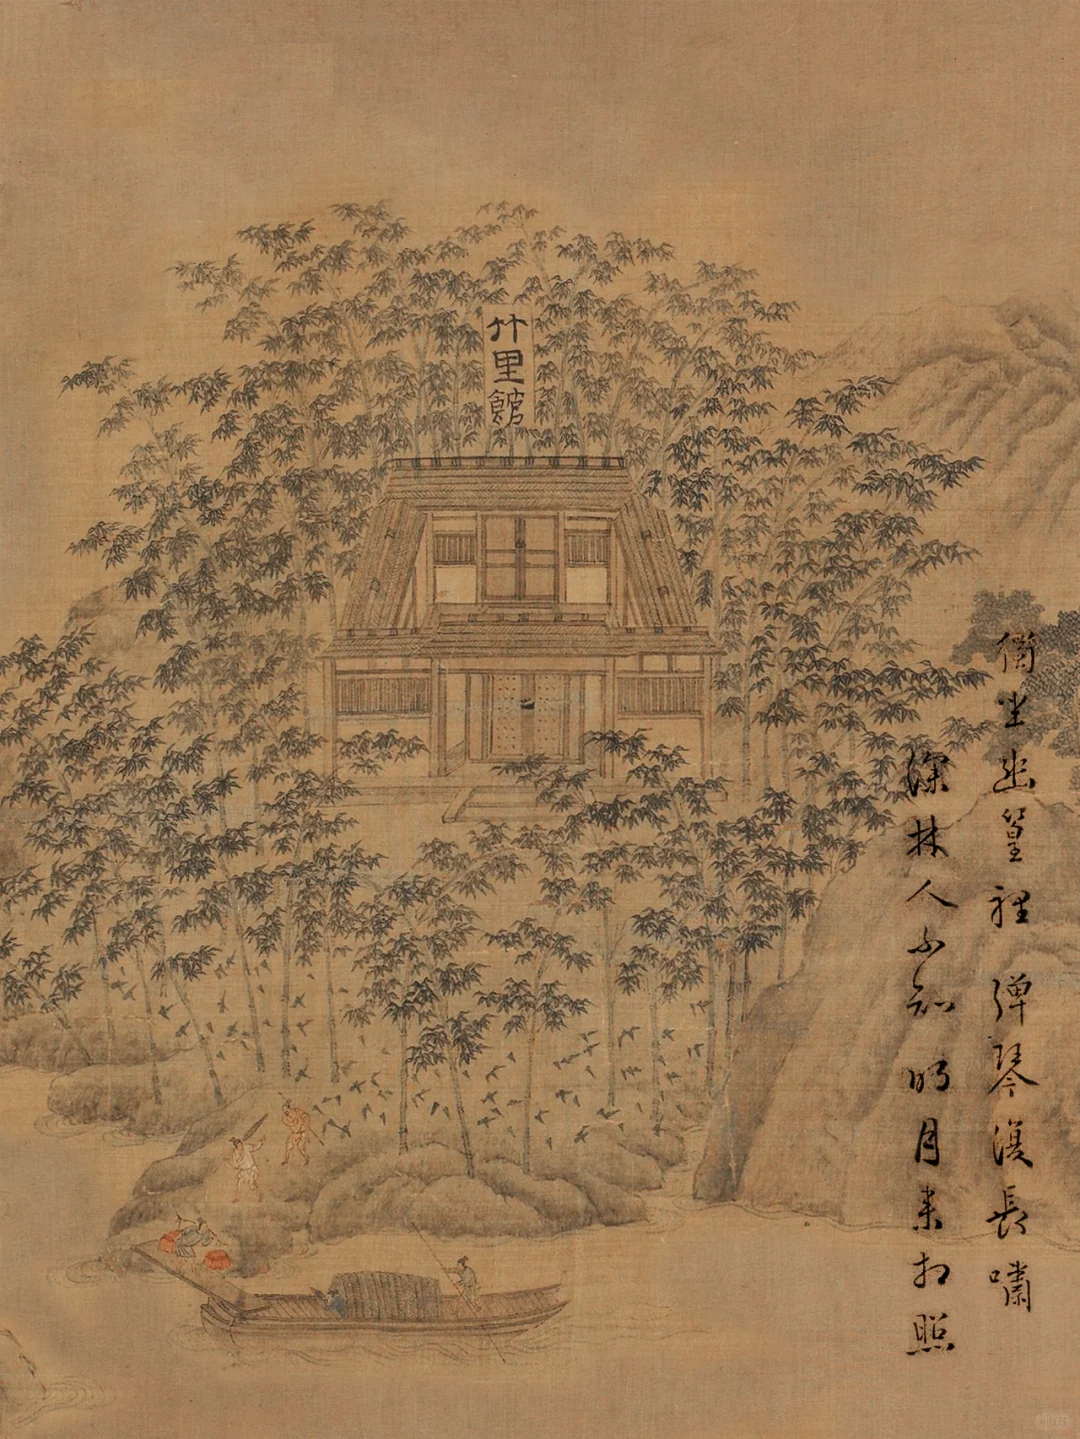 竹里館
獨坐幽篁裡 彈琴復長嘯
深林人不知 明月来相照